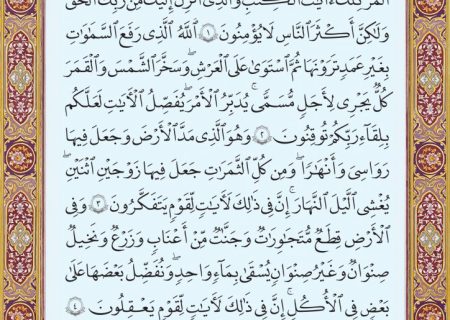 الٓمٓر تِلْكَ ءَايَٰتُ ٱلْكِتَٰبِ وَٱلَّذِىٓ أُنزِلَ إِلَيْكَ مِن رَّبِّكَ ٱلْحَقُّ
وَلَٰكِنَّ أَكْثَرَ ٱلنَّاسِ لَا يُؤْمِنُونَ ١ ٱللَّهُ ٱلَّذِى رَفَعَ ٱلسَّمَٰوَٰتِ
بِغَيْرِ عَمَدٍ تَرَوْنَهَا ثُمَّ ٱسْتَوَىٰ عَلَى ٱلْعَرْشِ وَسَخَّرَ ٱلشَّمْسَ وَٱلْقَمَرَ
كُلٌّ يَجْرِى لِأَجَلٍ مُّسَمًّى يُدَبِّرُ ٱلْأَمْرَ يُفَصِّلُ ٱلْءَايَٰتِ لَعَلَّكُم
بِلِقَآءِ رَبِّكُمْ تُوقِنُونَ ٢ وَهُوَ ٱلَّذِى مَدَّ ٱلْأَرْضَ وَجَعَلَ فِيهَا
رَوَٰسِىَ وَأَنْهَٰرًا وَمِن كُلِّ ٱلثَّمَرَٰتِ جَعَلَ فِيهَا زَوْجَيْنِ ٱثْنَيْنِ
يُغْشِى ٱلَّيْلَ ٱلنَّهَارَ إِنَّ فِى ذَٰلِكَ لَءَايَٰتٍ لِّقَوْمٍ يَتَفَكَّرُونَ ٣ وَفِى
ٱلْأَرْضِ قِطَعٌ مُّتَجَٰوِرَٰتٌ وَجَنَّٰتٌ مِّنْ أَعْنَٰبٍ وَزَرْعٌ وَنَخِيلٌ
صِنْوَانٌ وَغَيْرُ صِنْوَانٍ يُسْقَىٰ بِمَآءٍ وَٰحِدٍ وَنُفَضِّلُ بَعْضَهَا عَلَىٰ
بَعْضٍ فِى ٱلْأُكُلِ إِنَّ فِى ذَٰلِكَ لَءَايَٰتٍ لِّقَوْمٍ يَعْقِلُونَ ٤